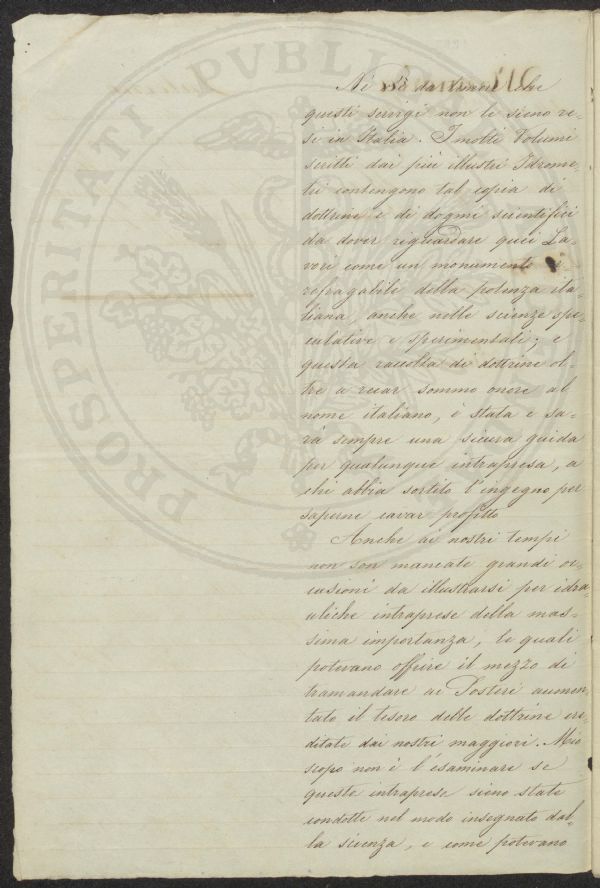 PROSPERITATI PUBLICAE
Nè è da temere che
questi servigi non le sieno re-
si in Italia. I molti Volumi
scritti dai più illustri Idrome-
tri contengono tal copia di
dottrine e di dogmi scientifici
da dover riguardare quei La-
vori come un monumento ir-
refragabile della potenza ita-
liana, anche nelle scienze spe-
culative e sperimentali; e
questa raccolta di dottrine ol-
tre a recar sommo onore al
nome italiano, è stata e sa-
rà sempre una sicura guida
per qualunque intrapresa, a
chi abbia sortito l'ingegno per
saperne cavar profitto
Anche ai nostri tempi
non son mancate grandi oc-
casioni da illustrarsi per idra-
uliche intraprese della mas-
sima importanza, le quali
potevano offrire il mezzo di
tramandare ai Posteri aumen-
tato il tesoro delle dottrine ere-
ditate dai nostri maggiori. Mio
scopo non è l'esaminare se
queste intraprese sieno state
condotte nel modo insegnato dal-
la scienza, e come potevano